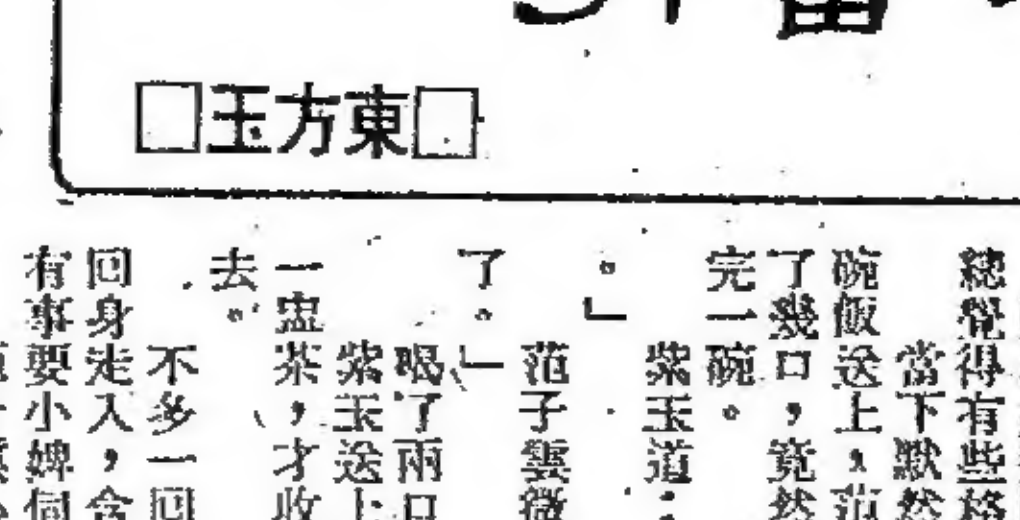 □東方玉□
總覺得有些格
當下默然
碗飯送上，范
了幾口，竟然
完一碗。
紫玉道：
。」
范子雲微
了。」
喝了兩口
紫玉送上
一盅茶，才收
去。
不多一回
回身走入，含
有事要小婢伺